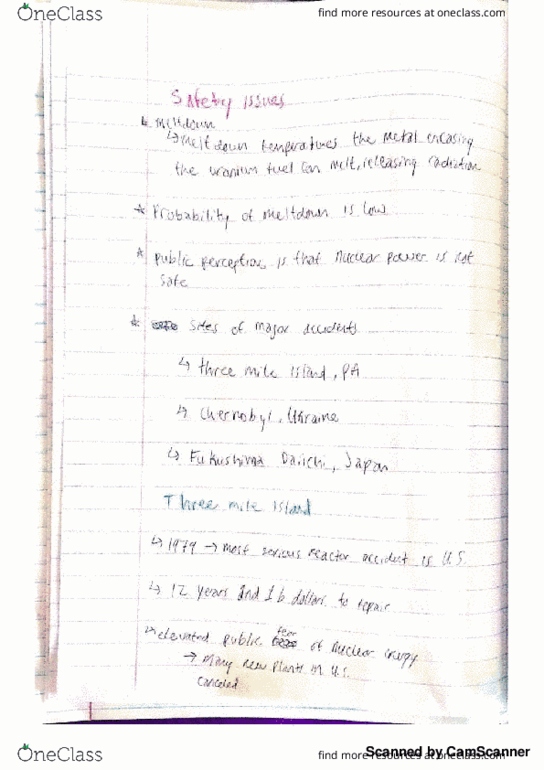 OneClass
find more resources at oneclass.com
Safety issues
meltdown
↳ Melt down temperatures the metal encasing
the uranium fuel can melt, releasing radiation
* Probability of meltdown is low
* public perception is that Nuclear power is not
safe
* sites of major accidents
↳ three mile island, PA
↳ Chernobyl, Ukraine
↳ Fukushima Daiichi, Japan
Three mile island
↳ 1979 → most serious reactor accident is U.S.
↳ 12 years and 1 b dollars to repair
↳ elevated public fear of nuclear energy
→ Many new plants in U.S.
canceled
OneClass
find more resources at oneclass.com
Scanned by CamScanner